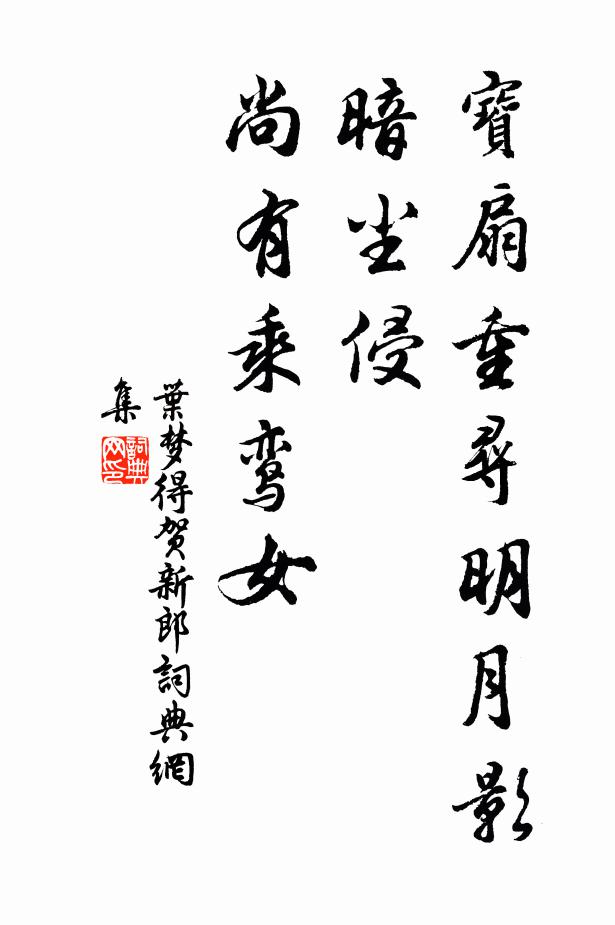 寶扇重尋明月影
暗尘侵
尚有乘鸾女
葉梦得贺新郎詞典網
集
詞典
网印